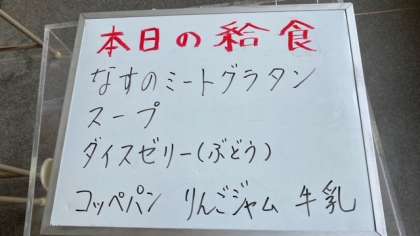 本日の給食
なすのミートグラタン
スープ
ダイスゼリー(ぶどう)
コッペパン りんごジャム 牛乳